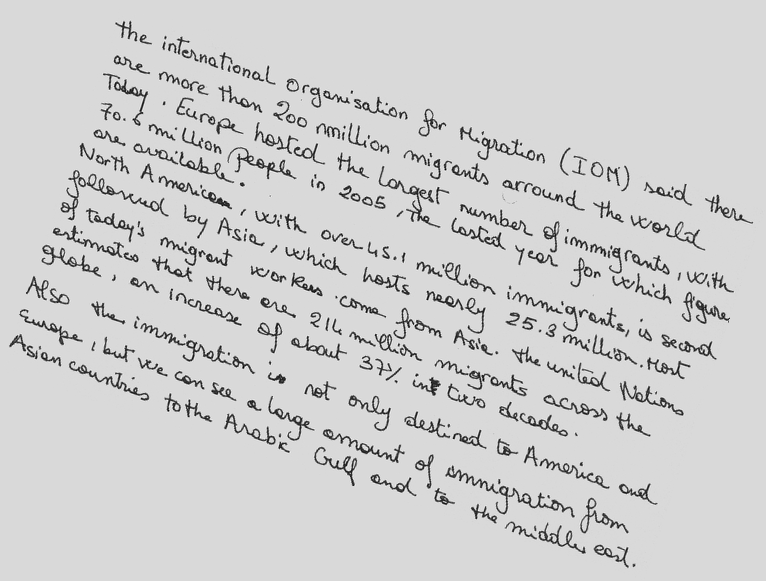 the international organisation for Migration (IOM) said there
are more than 200 million migrants arround the world
Today. Europe hosted the largest number of immigrants, with
70.6 million People in 2005, the lasted year for which figure
are available.
North American, with over 45.1 million immigrants, is second
followed by Asia, which hosts nearly 25.3 million. Most
of today's migrant workers come from Asia. the united Nations
estimates that there are 214 million migrants across the
globe, an increase of about 37% in two decades.
Also the immigration is not only destined to America and
Europe, but we can see a large amount of immigration from
Asian countries to the Arabic Gulf and to the middle east.